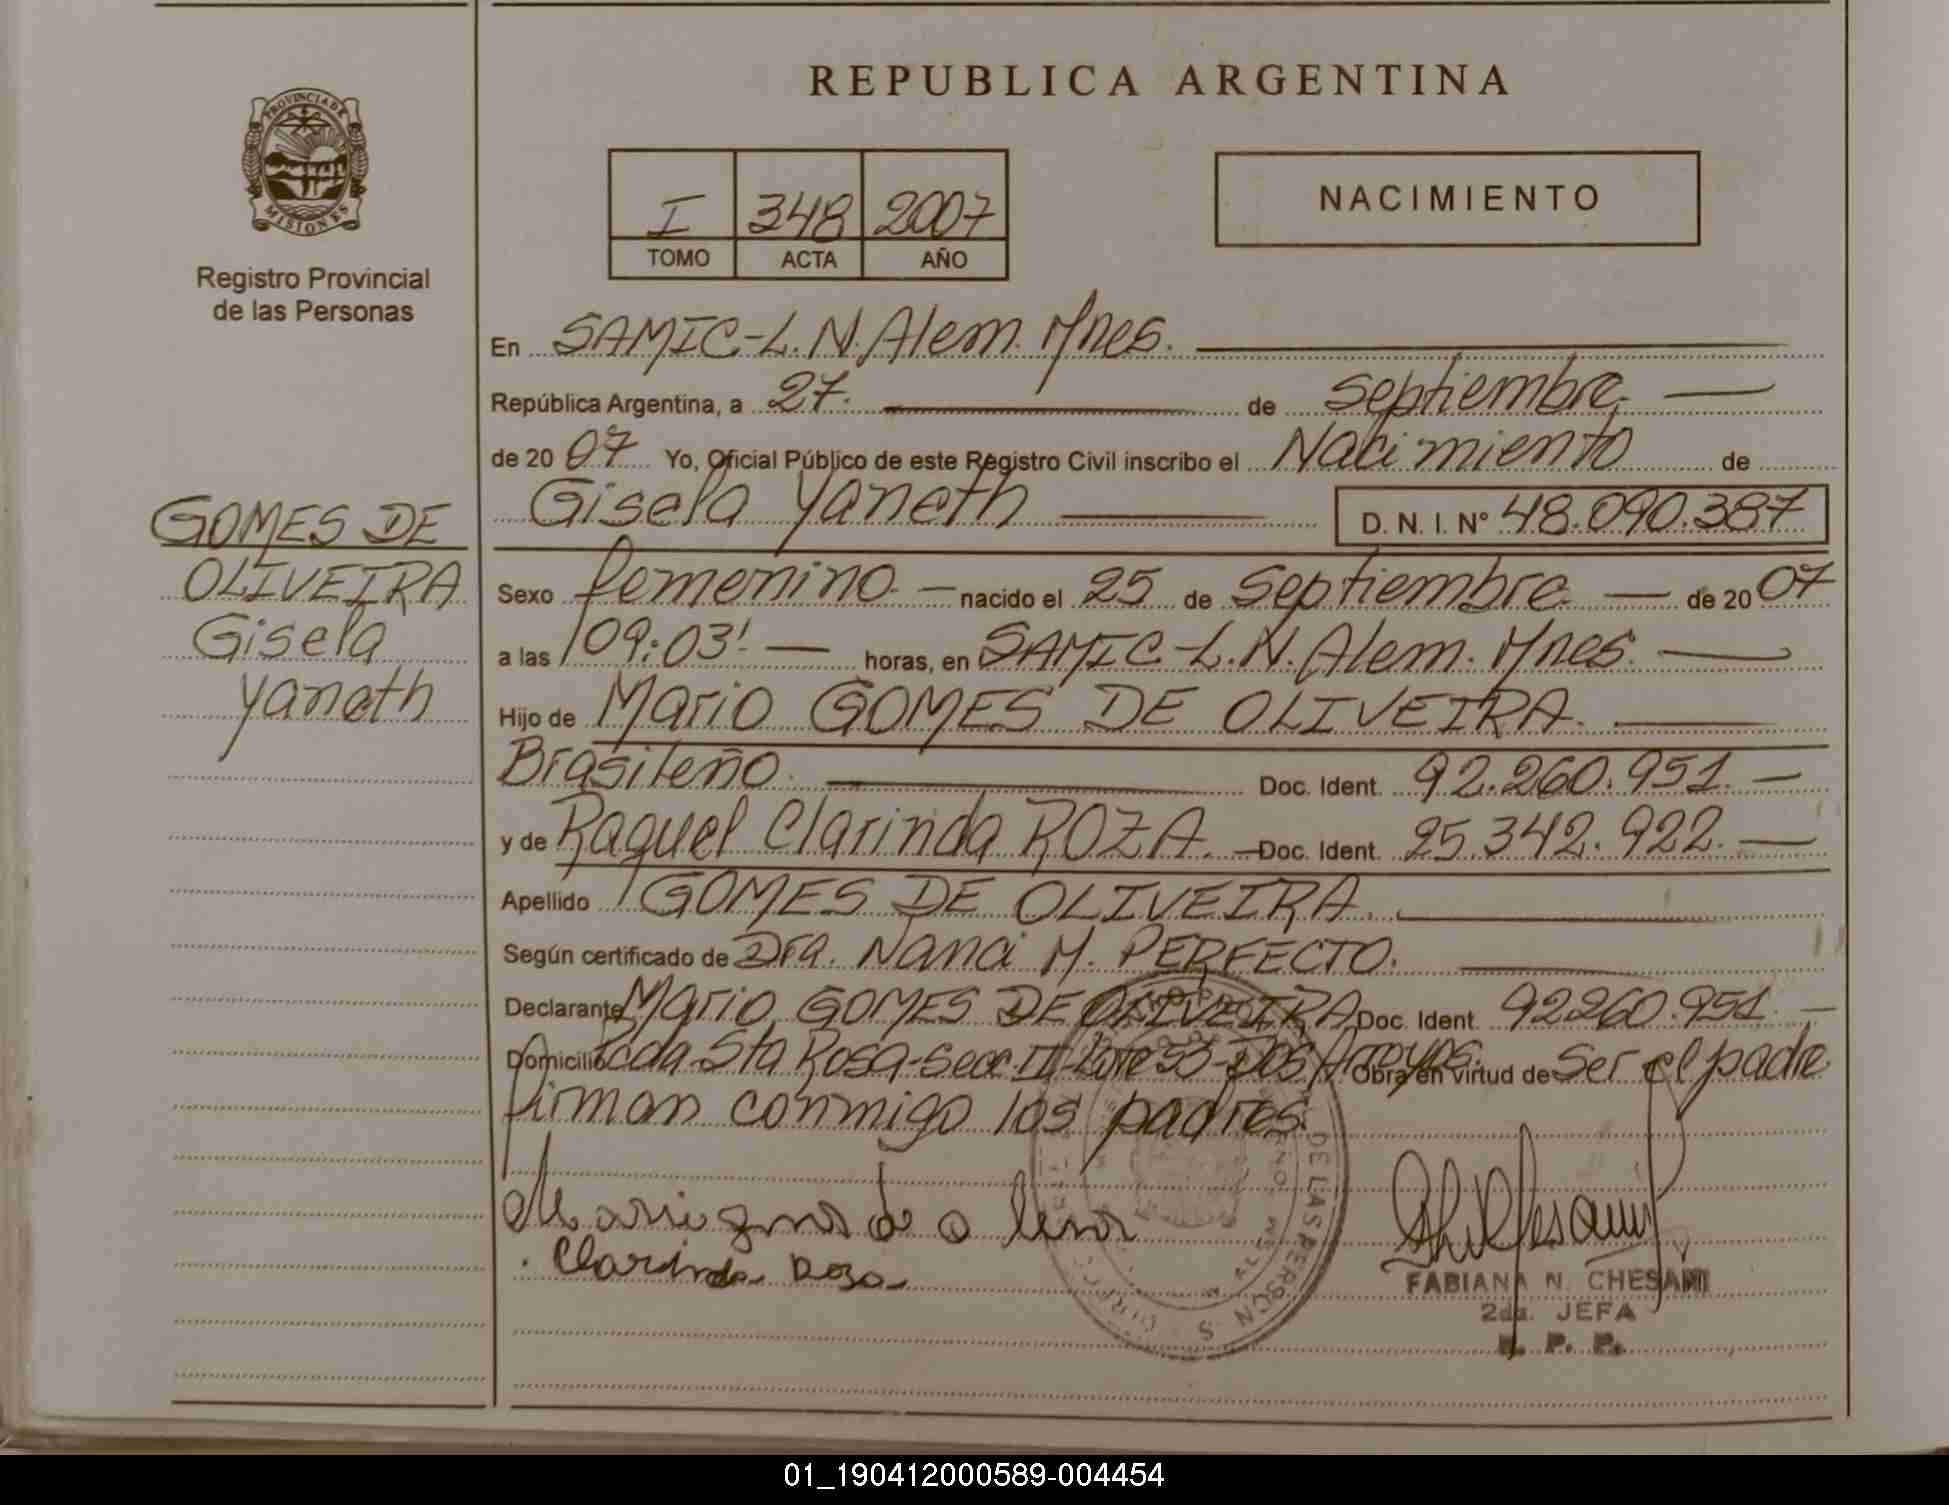 REPUBLICA ARGENTINA
PROVINCIA DE
MISIONES
Registro Provincial
de las Personas
I 348 2007
TOMO ACTA AÑO
NACIMIENTO
En SAMIC-L.N.Alem. Mnes.
República Argentina, a 27. de septiembre.
de 20 07 Yo, Oficial Público de este Registro Civil inscribo el Nacimiento de
Gisela Yaneth D. N. I. N° 48.090.387
GOMES DE
OLIVEIRA
Gisela
Yaneth
Sexo femenino. nacido el 25 de septiembre. de 20 07
a las 09:03'. horas, en SAMIC-L.N.Alem. Mnes.
Hijo de Mario GOMES DE OLIVEIRA.
Brasileño. Doc. Ident. 92.260.951.
y de Raquel Clarinda ROZA. Doc. Ident. 25.342.922.
Apellido GOMES DE OLIVEIRA.
Según certificado de Dra. Nanci M. PERFECTO.
Declarante Mario GOMES DE OLIVEIRA Doc. Ident. 92260.951.
Domicilio Pcda Sta Rosa-Secc. II-Lote 53-Dos Arroyos. Obra en virtud de Ser el padre
firman conmigo los padres.
DE LAS PERSONAS
Clarinda Roza
FABIANA N. CHESANI
2da. JEFA
R. P. P.
01_190412000589-004454